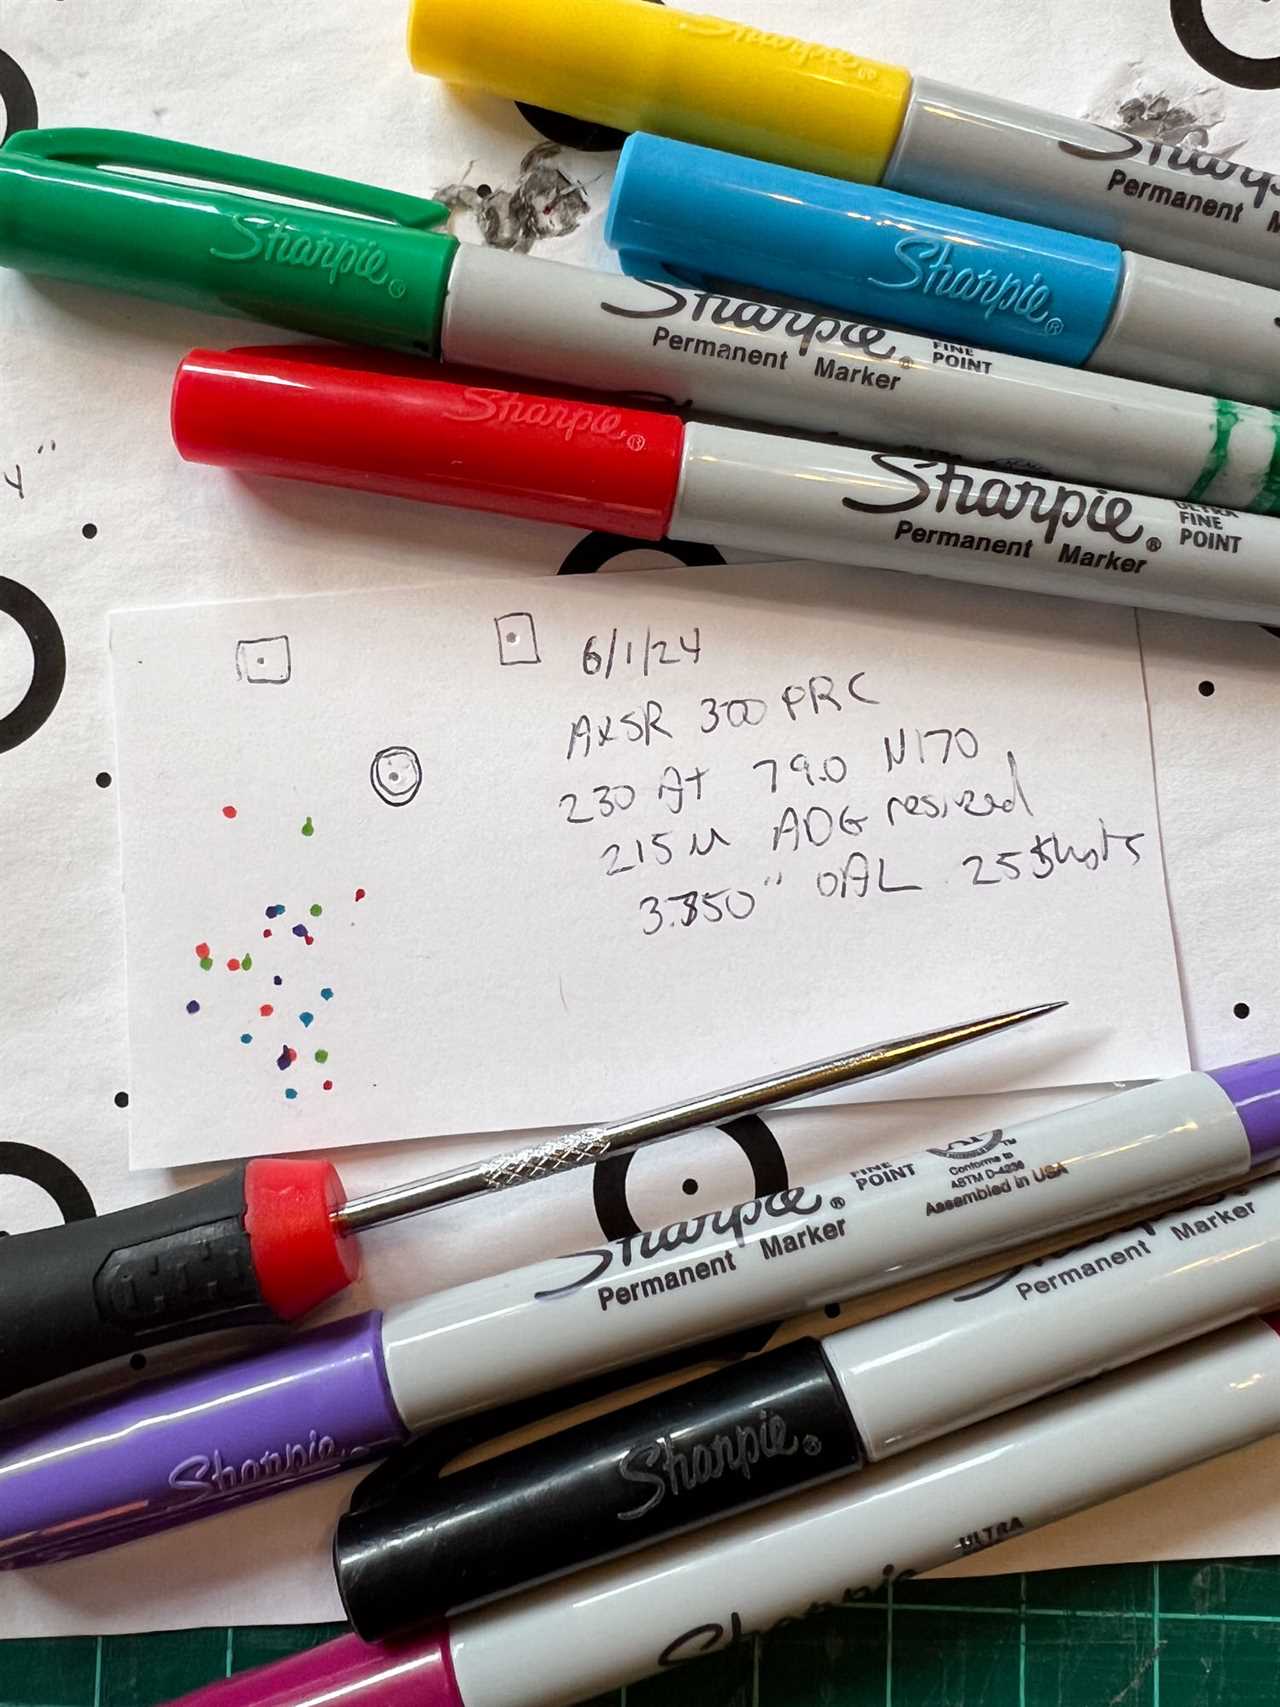 Sharpie®
Sharpie
Permanent
Sharpie®
Sharpie®
Sharpie®
Permanent Marker
FINE
POINT
Sharpie®
Sharpie®
Permanent Marker
ULTRA
FINE
POINT
4"
6/1/24
AXSR 300 PRC
230 At 79.0 N170
215M ADG resized
3.850" OAL 25 Shots
Sharpie®
Permanent Marker
FINE
POINT
Conforms to
ASTM D-4236
Assembled in USA
Permanent Marker
Sharpie
Sharpie®
ULTRA
Sharpie